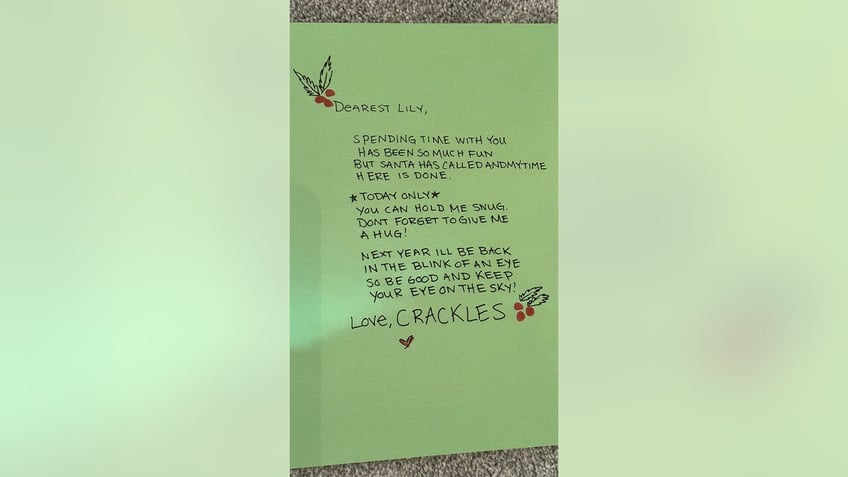 DEAREST LILY,
SPENDING TIME WITH YOU
HAS BEEN SO MUCH FUN
BUT SANTA HAS CALLED AND MY TIME
HERE IS DONE.
★TODAY ONLY★
YOU CAN HOLD ME SNUG.
DONT FORGET TO GIVE ME
A HUG!
NEXT YEAR ILL BE BACK
IN THE BLINK OF AN EYE
SO BE GOOD AND KEEP
YOUR EYE ON THE SKY!
LOVE, CRACKLES